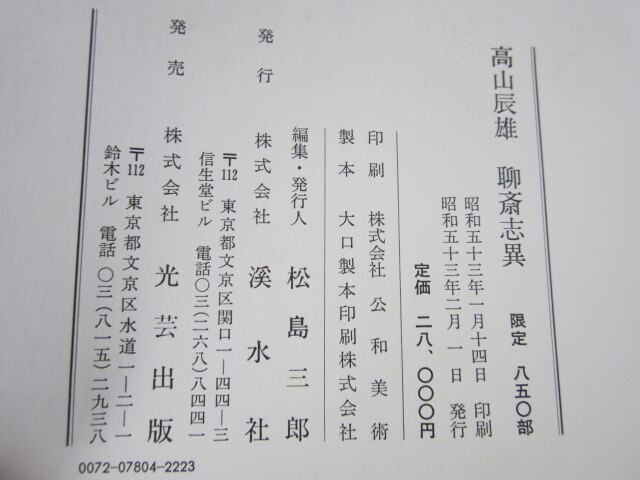 高山辰雄 聊斎志異 限定 八五〇部
昭和五十三年一月十四日 印刷
昭和五十三年二月 一 日 発行
定価 二八、〇〇〇円
印刷 株式会社 公和美術
製本 大口製本印刷株式会社
編集・発行人 松島三郎
発行 株式会社 溪水社
〒112 東京都文京区関口一―四四―三
信生堂ビル 電話〇三(二六八)八四四一
発売 株式会社 光芸出版
〒112 東京都文京区水道一―二―一
鈴木ビル 電話 〇三(八一五)二九三八
0072-07804-2223